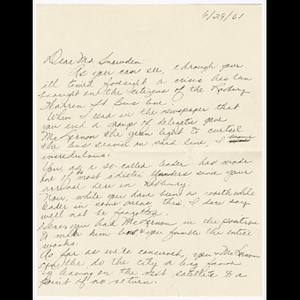 6/29/61
Dear Mr. Snowden
As you can see, through your
ill timed foresight a crisis has been
brought on the citizens of the Roxbury
Warren St Bus line.
When I read in the newspaper that
you and a group of delegates gave
McLernon the green light to curtail
the bus service on said line, I was
incredulous.
You, as a so-called leader has made
one of the most idiotic blunders since your
arrival here in Roxbury.
Now, while you have been a worthwhile
leader in some areas, this, I dare say
will not be forgotten.
Here you had McLernon in the position
to make him and you fumble the entire
works.
As far as we're concerned, you & McLernon
can the city a big favor
by leaving on the next satellite to a
point of no return.